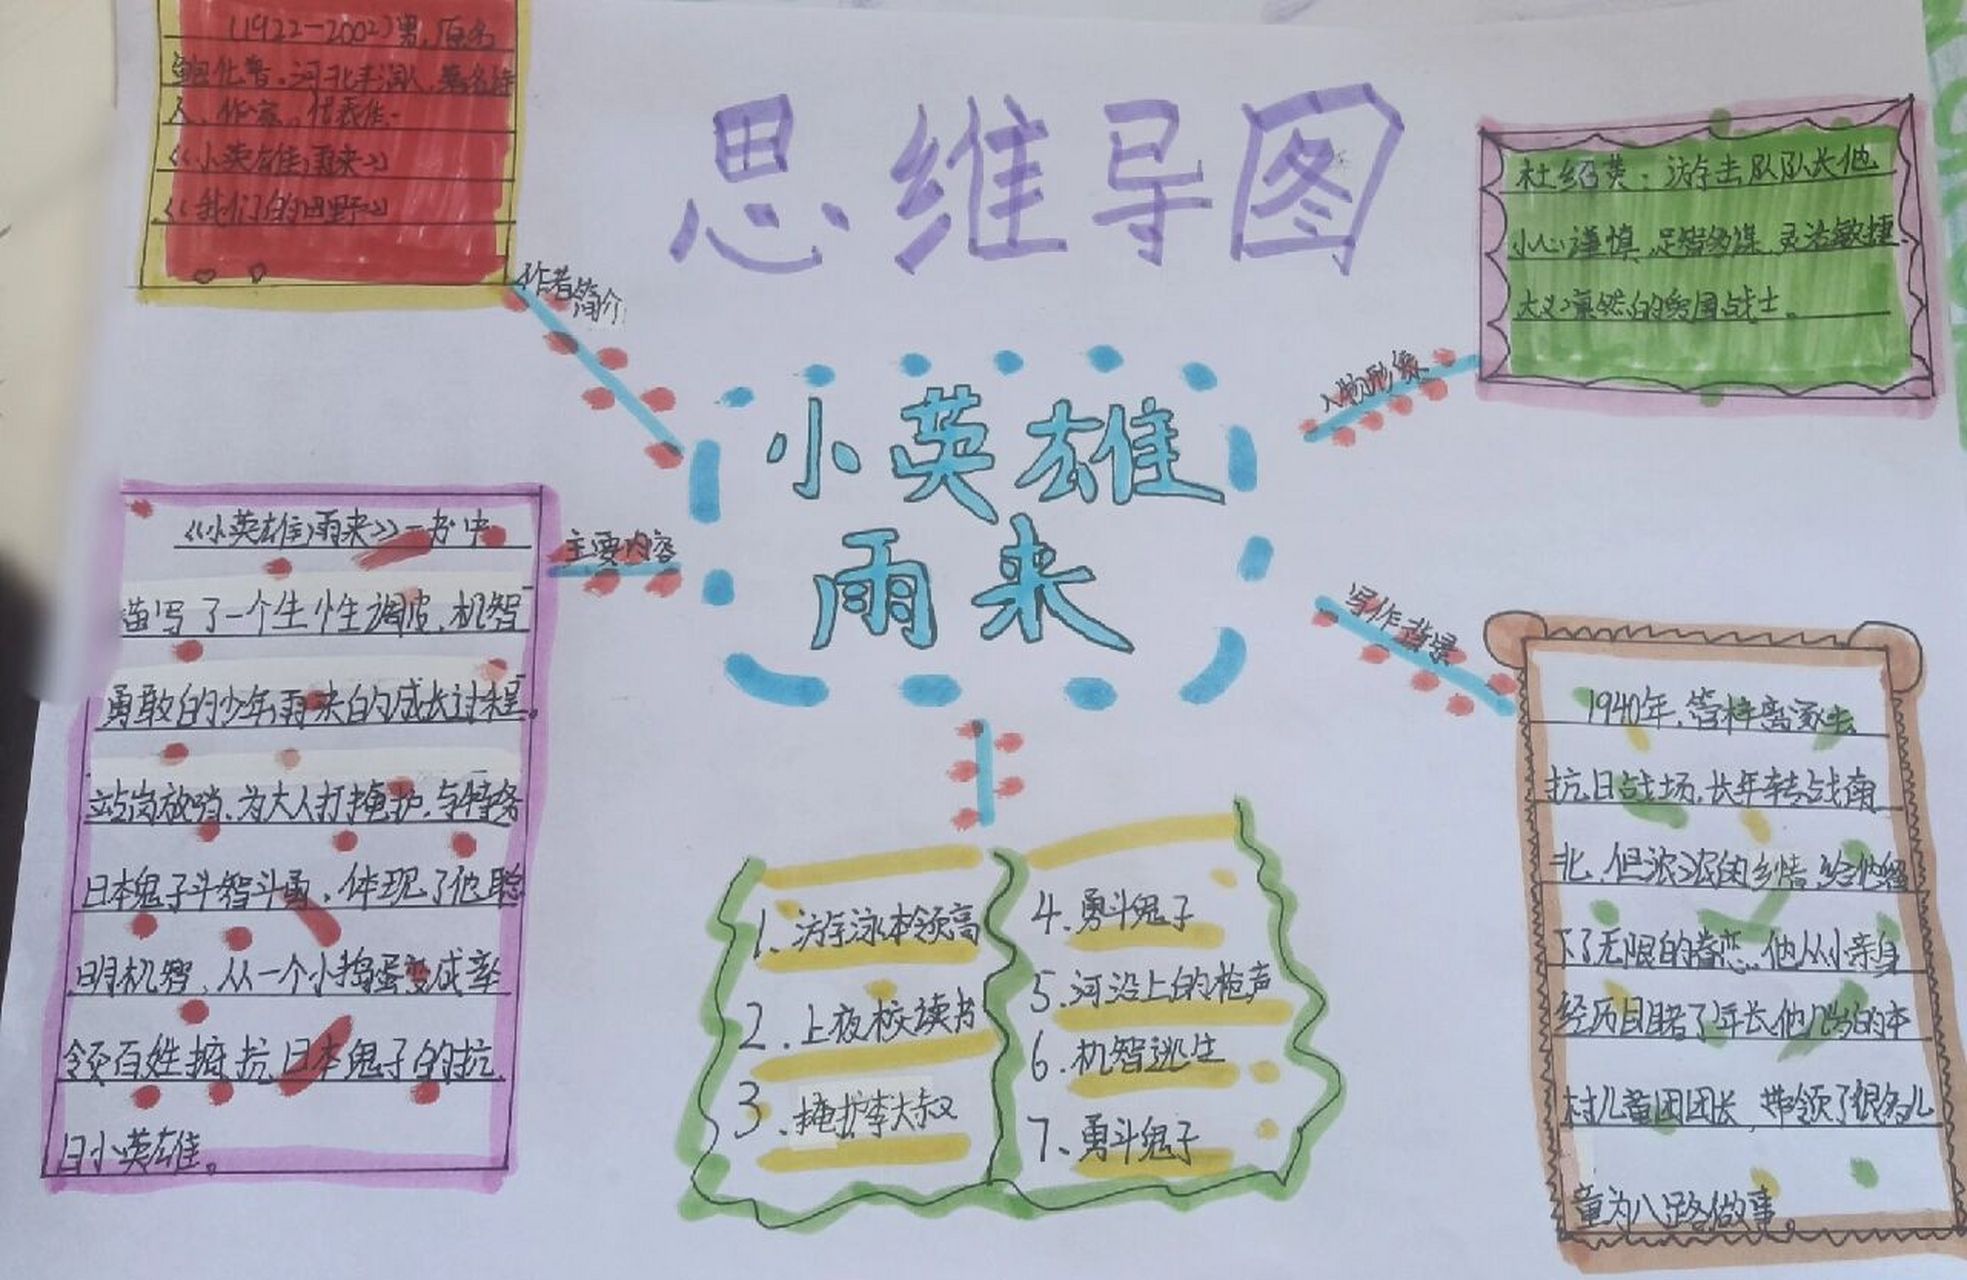 思维导图
小英雄
雨来
作者简介
(1922—2002)男,原名
鲍化普。河北丰润人,著名诗
人、作家。代表作:
《小英雄雨来》
《我们的田野》
主要内容
《小英雄雨来》一书中
描写了一个生性调皮、机智
勇敢的少年雨来的成长过程。
站岗放哨、为大人打掩护、与特务
日本鬼子斗智斗勇,体现了他聪
明机智,从一个小捣蛋变成率
领百姓抵抗日本鬼子的抗
日小英雄。
1、游泳本领高
2、上夜校读书
3、掩护李大叔
4、勇斗鬼子
5、河沿上的枪声
6、机智逃生
7、勇斗鬼子
人物形象
杜绍英:游击队队长他
小心谨慎,足智多谋,灵活敏捷
大义凛然的爱国战士。
写作背景
1940年,管桦离家去
抗日战场,长年转战南
北,但浓浓的乡情,给他留
下了无限的眷恋。他从小亲身
经历目睹了年长他几岁的本
村儿童团团长,带领了很多儿
童为八路做事。